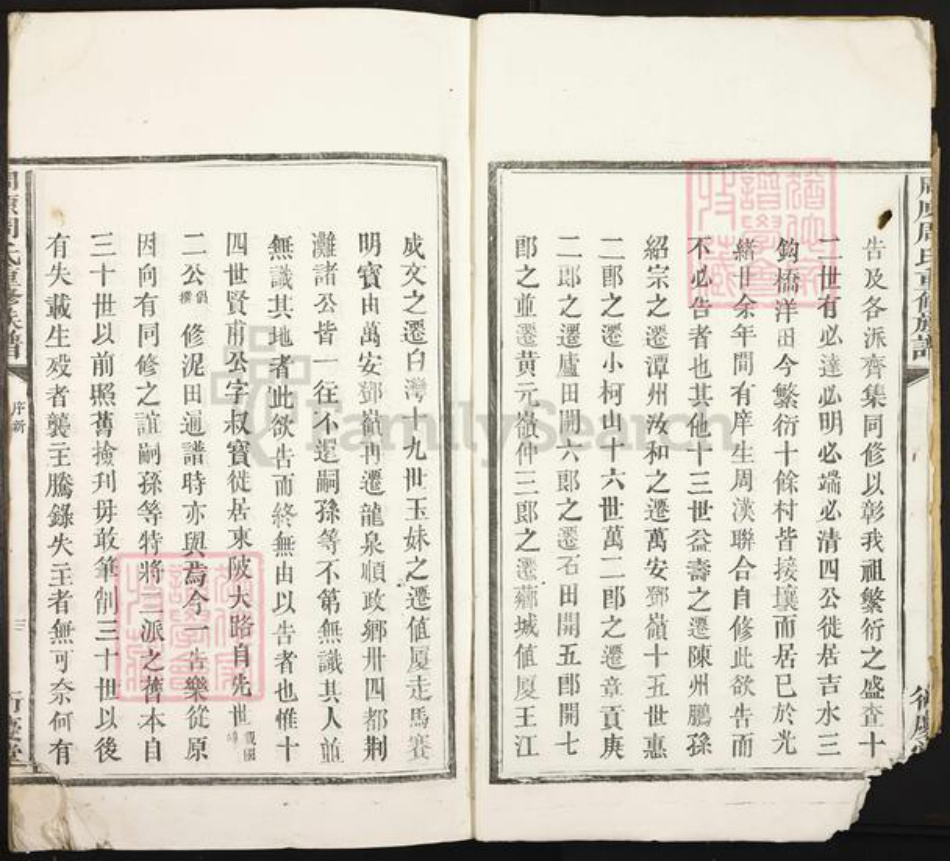 告及各派齊集同修以彰我祖繁衍之盛查十
二世有必達必明必端必清四公徙居吉水三
鈎橋洋田今繁衍十餘村皆接壤而居已於光
緒世余年間有庠生周漢聯合自修此欲告而
不必告者也其他十三世益壽之遷陳州鵬孫
紹宗之遷潭州汝和之遷萬安鄧嶺十五世惠
二郎之遷小柯山十六世萬二郎之遷章貢庚
二郎之遷廬田開六郎之遷石田開五郎開七
郎之並遷黄元嶺仲三郎之遷城值厦王江
成文之遷白灣十九世玉妹之遷值厦走馬賽
明寶由萬安鄧嶺再遷龍泉順政鄉卅四都荆
灘諸公皆一往不還嗣孫等不第無識其人並
無識其地者此欲告而終無由以告者也惟十
四世賢甫公字叔寶徙居東陂大路自先世
二公修泥田通譜時亦與焉今一告樂從原
因向有同修之誼嗣孫等特將二派之舊本自
三十世以前照舊撿刋毋敢筆削三十世以後
有失載生殁者襲主騰錄失主者無可奈何有
周氏重修族譜
序新
三
FamilySearch